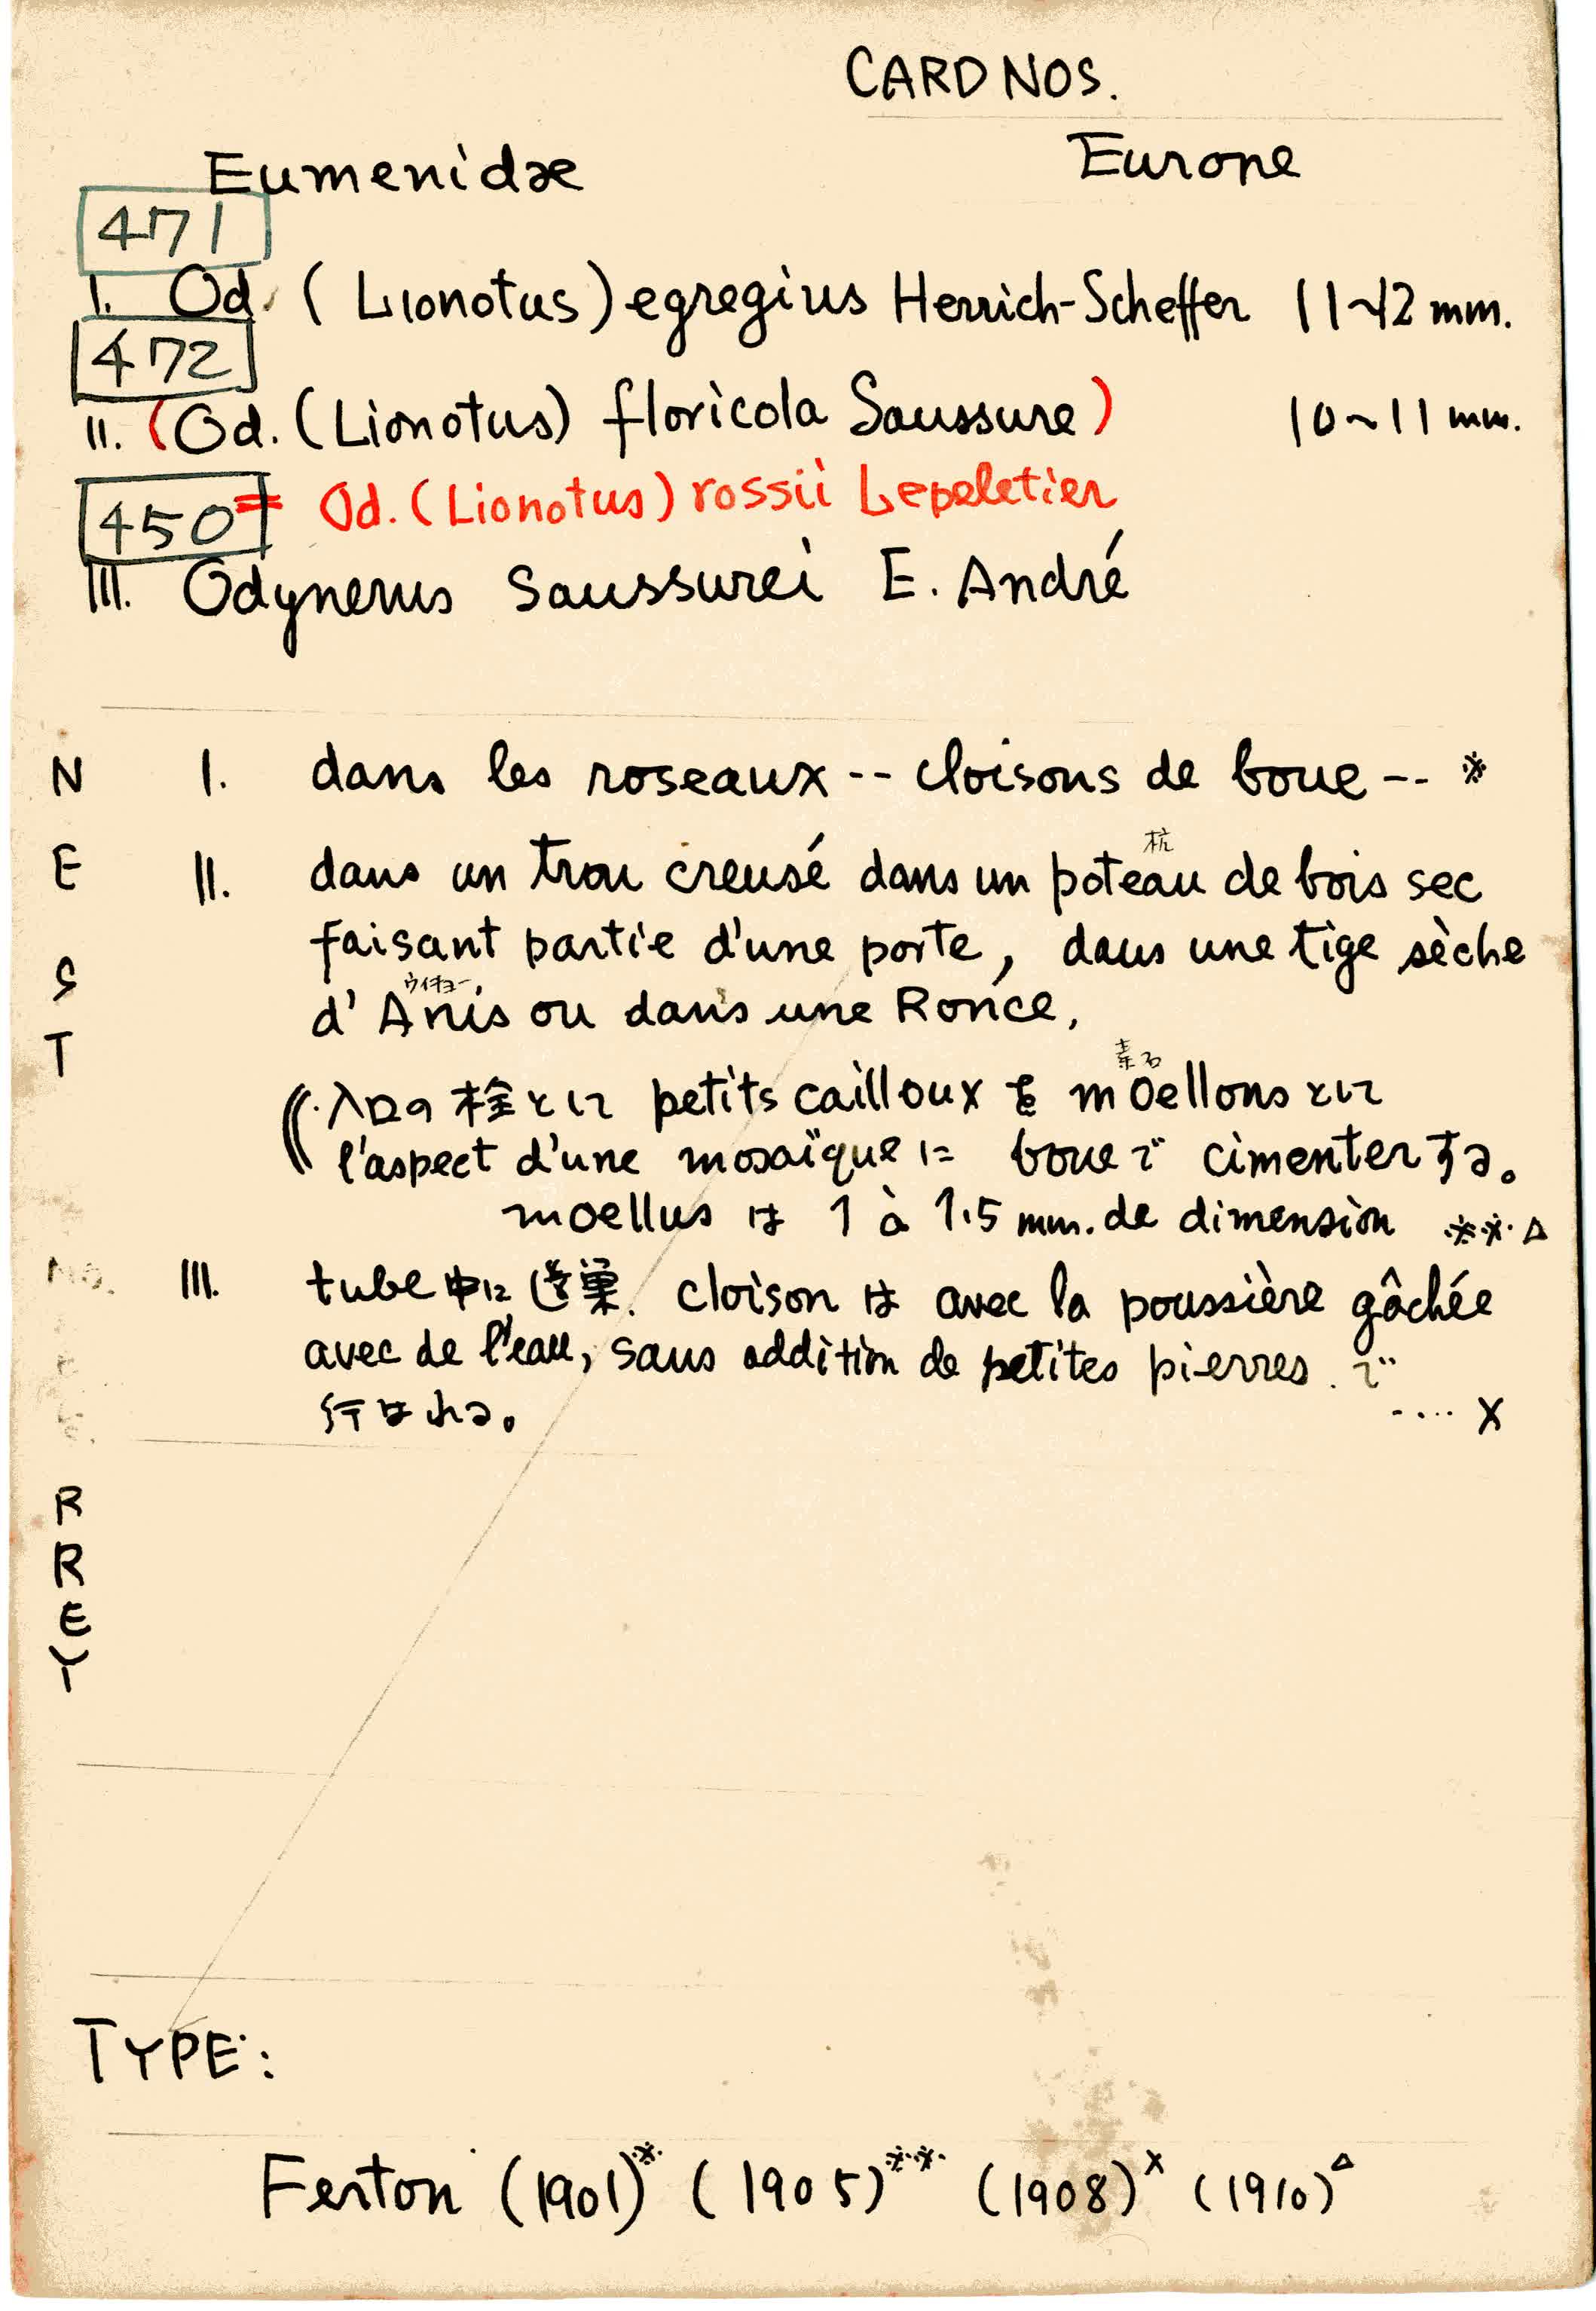 CARD NOS.
Eumenidæ Europe
471
I. Od. (Lionotus) egregius Herrich-Scheffer 11~12 mm.
472
II. (Od. (Lionotus) floricola Saussure) 10~11 mm.
450 = Od. (Lionotus) rossii Lepeletier
III. Odynerus Saussurei E. André
NEST
I. dans les roseaux -- cloisons de boue -- ※
杭
II. dans un trou creusé dans un poteau de bois sec
faisant partie d'une porte, dans une tige sèche
ウイキョー
d'Anis ou dans une Ronce,
(入口の栓として petits cailloux を moellons として
l'aspect d'une mosaïque に boue で cimenterする。
moellus は 1 à 1.5 mm. de dimension ※※△
No. III. tube中に造巣. cloison は avec la poussière gâchée
avec de l'eau, sans addition de petites pierres. で
行はれる。 .... X
RREY
TYPE:
Ferton (1901)※ (1905)※※ (1908)x (1910)△